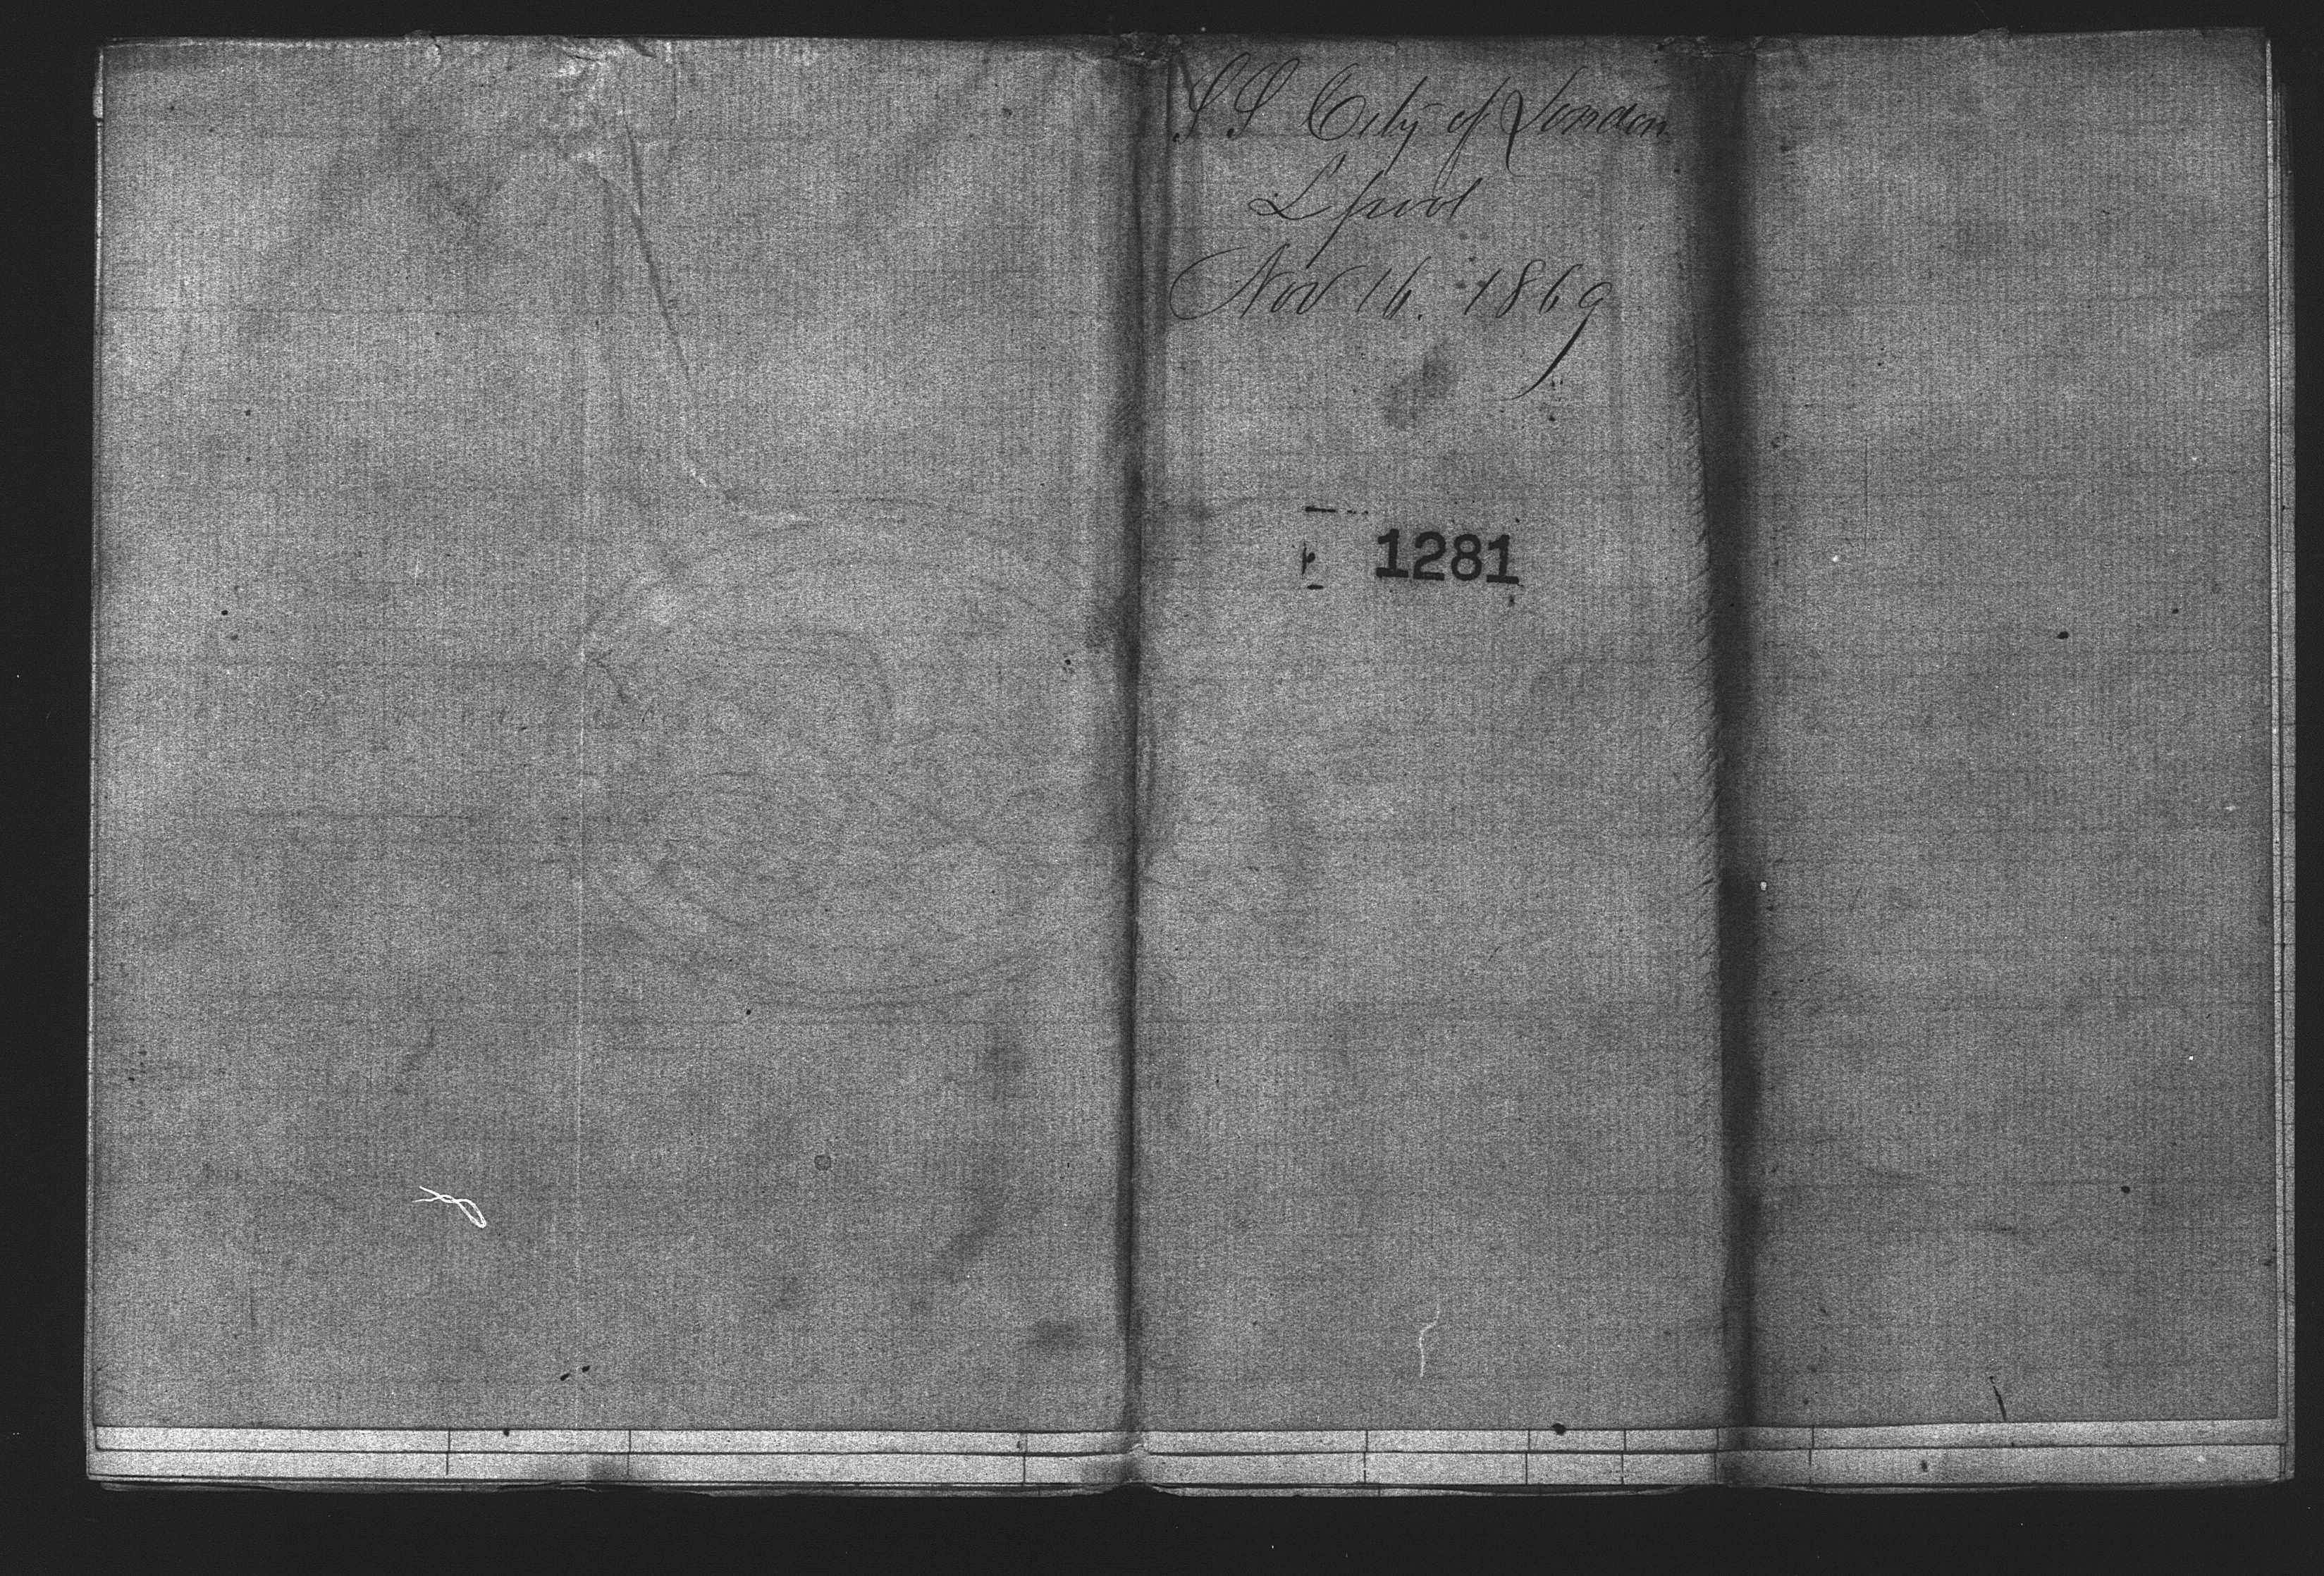 SS City of London
Lpool
Nov 16. 1869
1281